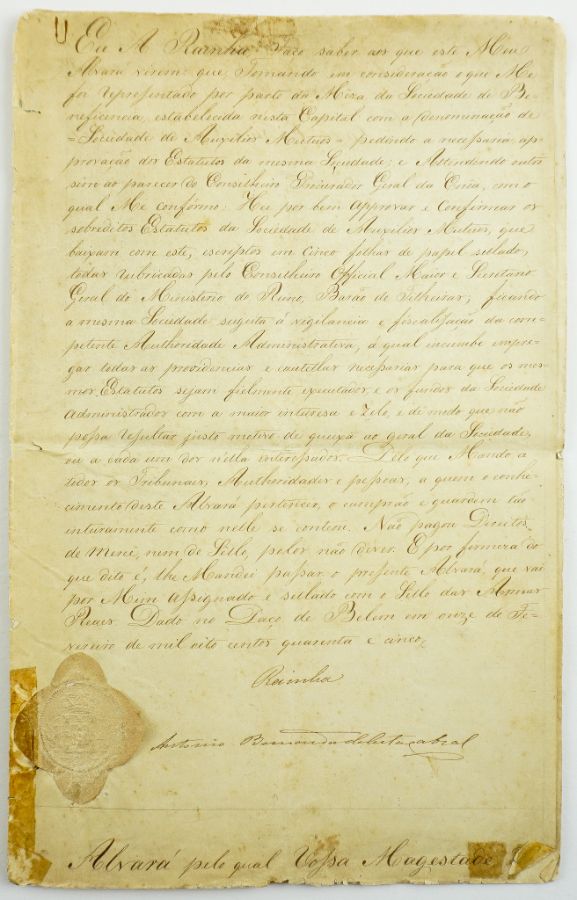 Eu A Rainha Faço saber aos que este Meu
Alvará virem: que Tomando em consideração o que Me
foi representado por parte da Meza da Sociedade de Be-
neficencia, estabelecida nesta Capital com a denominação de
=Sociedade de Auxilios Mutuos= pedindo a necessaria ap-
provação dos Estatutos da mesma Sociedade; e Attendendo outro
sim ao parecer do Conselheiro Procurador Geral da Corôa, com o
qual Me conformo: Hei por bem Approvar e Confirmar os
sobreditos Estatutos da Sociedade de Auxilios Mutuos, que
baixam com este, escriptos em cinco folhas de papel sellado,
todas rubricadas pelo Conselheiro Official Maior e Secretario
Geral do Ministerio do Reino, Barão de Tilheiras; ficando
a mesma Sociedade sugeita á vigilancia e fiscalisação da com-
petente Authoridade Administrativa, á qual incumbe impre-
gar todas as providencias e cautellas necessarias para que os mes-
mos Estatutos sejam fielmente executados, e os fundos da Sociedade
administrados com a maior intereza e zelo, e de modo que não
possa resultar justo motivo de queixa ao geral da Sociedade,
ou a cada um dos nella interessados. Pelo que Mando a
todos os Tribunaes, Authoridades e pessoas, a quem o conhe-
cimento deste Alvará pertencer, o cumprão e guardem tão
inteiramente como nelle se contem. Não pagou Direitos
de Mercê, nem de Sello, pelos não dever. E por firmeza do
que dito é, lhe Mandei passar o presente Alvará, que vai
por Mim assignado e sellado com o Sello das Armas
Reaes. Dado no Paço de Belem em onze de Fe-
vereiro de mil oito centos quarenta e cinco,
Rainha
Antonio Bernardo da Costa Cabral
Alvará pelo qual Vossa Magestade